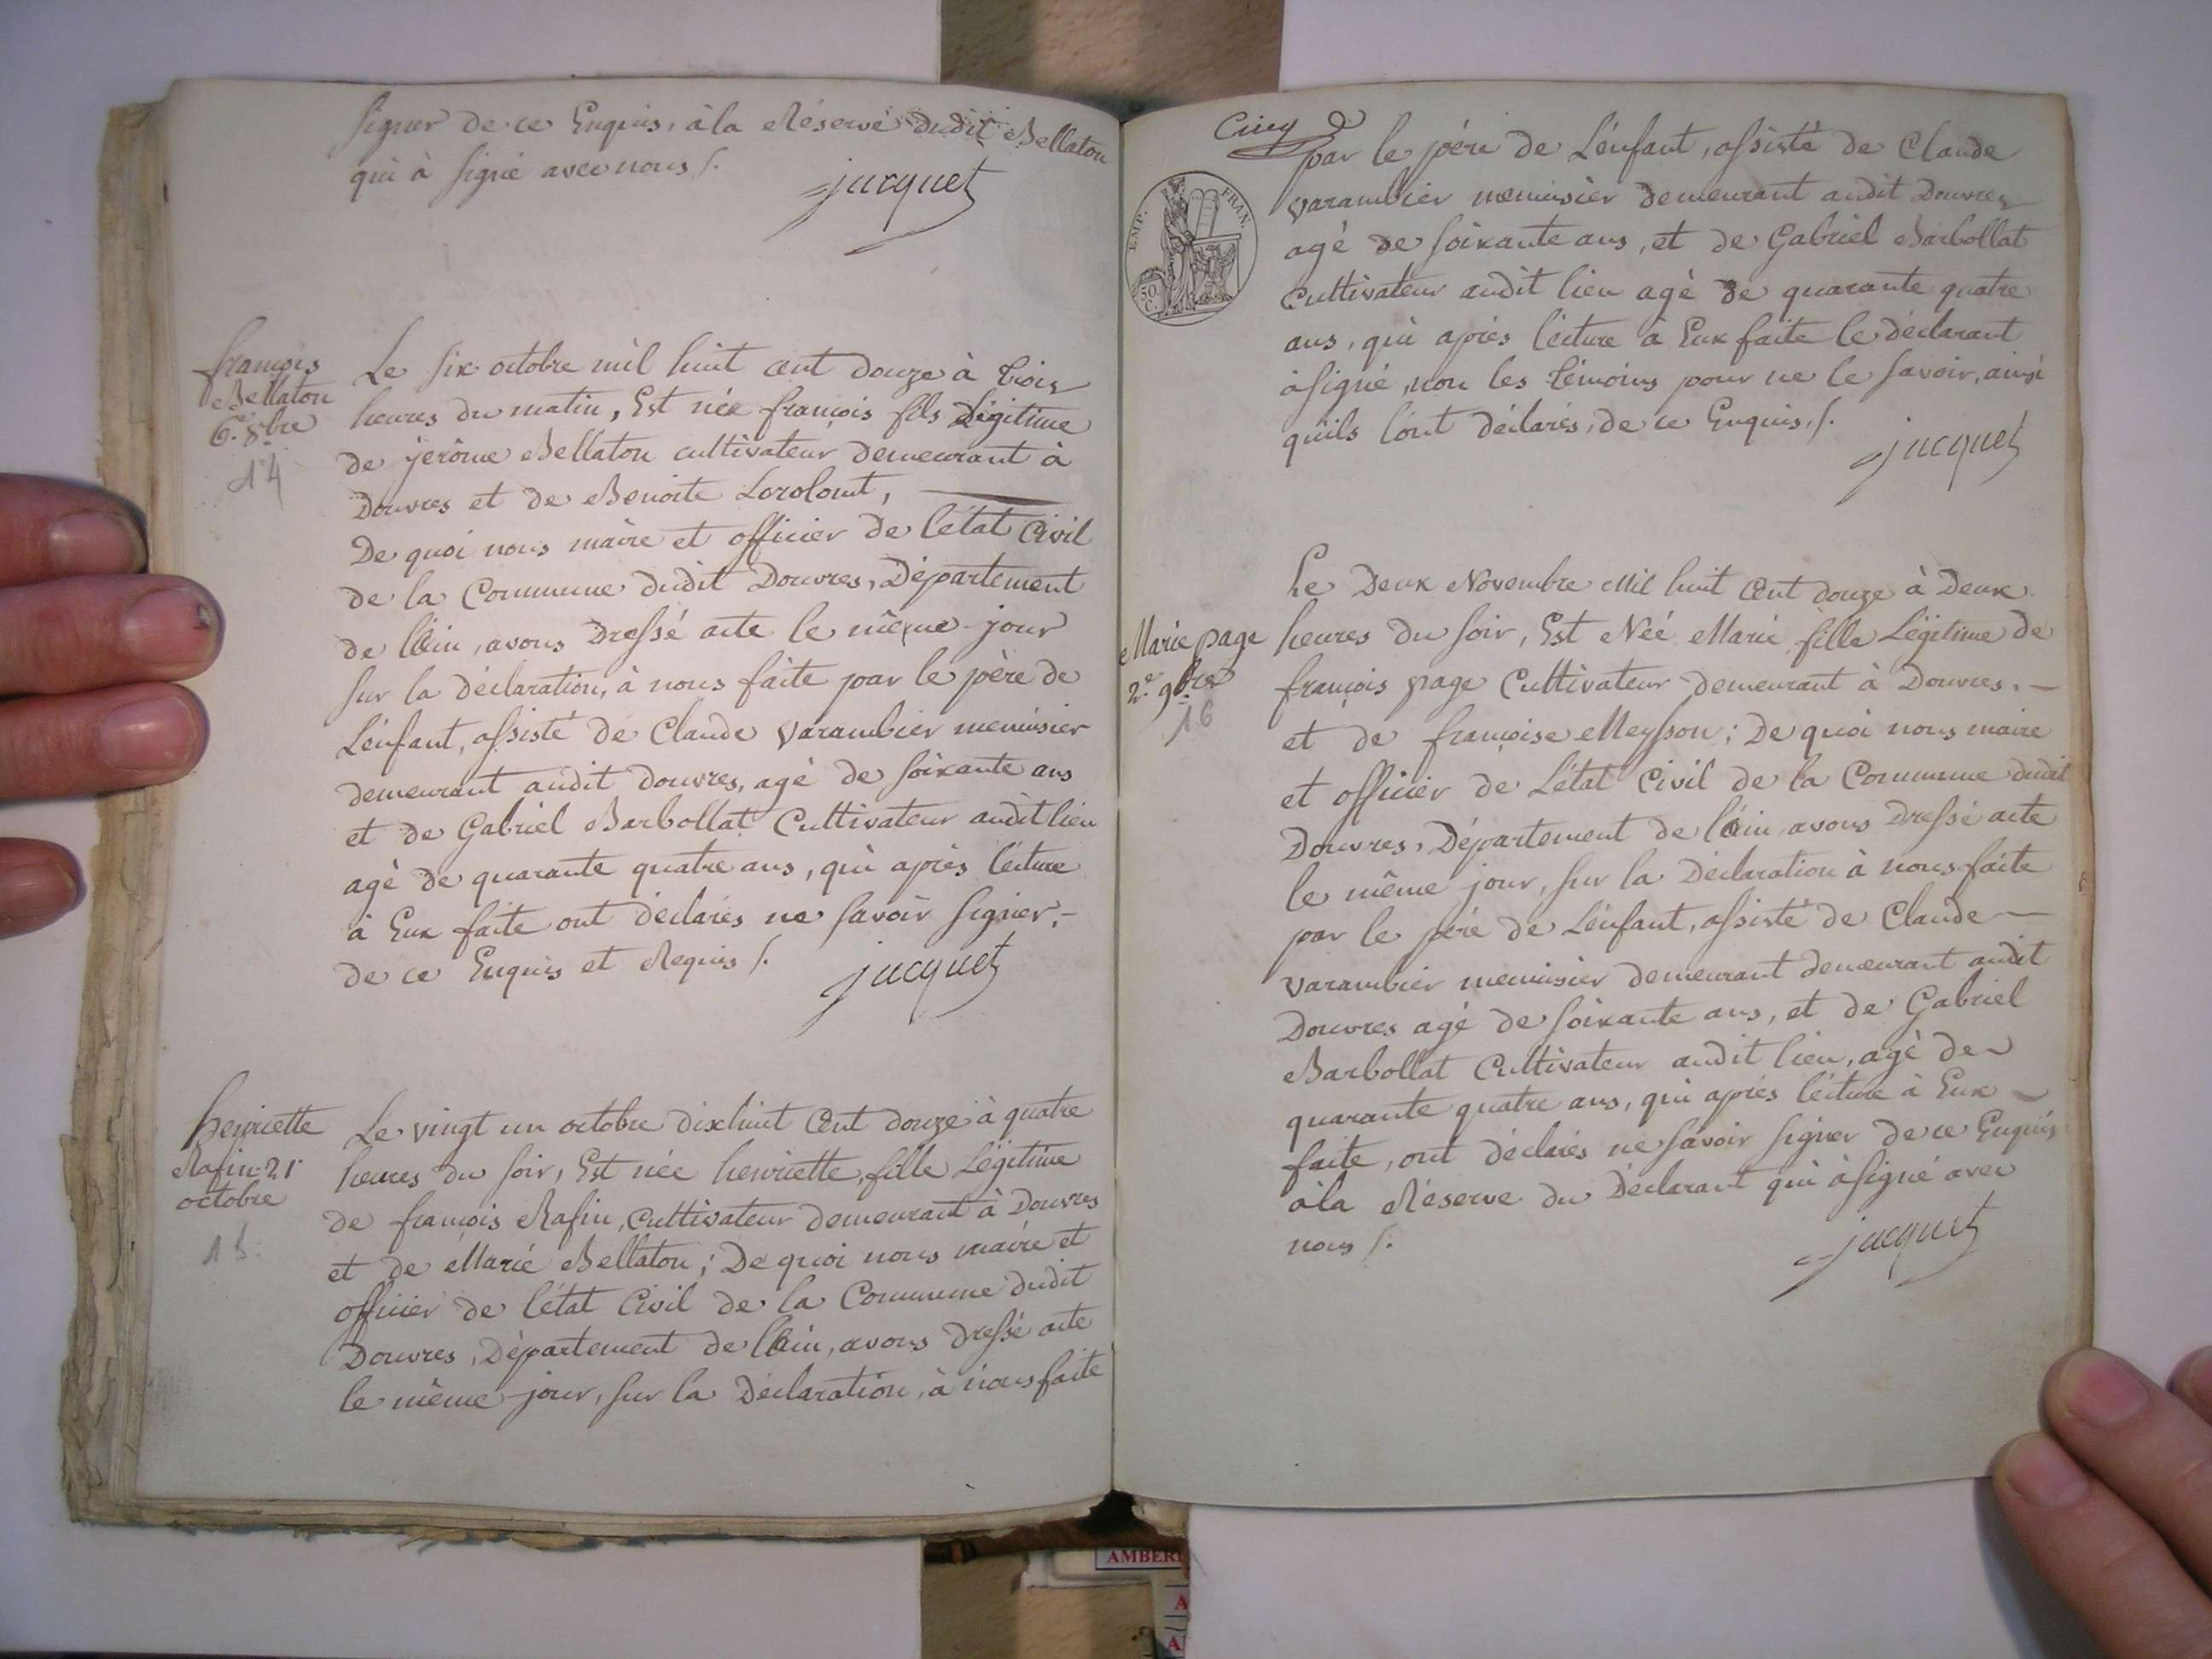 signer de ce Enquis, à la Réserve dudit Bellaton
qui à signé avec nous /.
jacquet
françois
Bellaton
6.e 8.bre
14
Le six octobre mil huit cent douze à trois
heures du matin, Est née françois fils Légitime
de jérôme Bellaton cultivateur demeurant à
Douvres et de Benoite Lorolont,
De quoi nous maire et officier de l'état Civil
de la Commune dudit Douvres, Département
de l'ain, avons Dressé acte le même jour
sur la déclaration, à nous faite par le père de
L'énfant, assisté de Claude varambier menuisier
demeurant audit douvres, agé de soixante ans
et de Gabriel Barbollat Cultivateur audit lieu
agé de quarante quatre ans, qui après lecture
à Eux faite ont déclarés ne savoir signer,-
de ce Enquis et Requis /.
jacquet
henriette
Rafin 21
octobre
15
Le vingt un octobre dixhuit Cent douze à quatre
heures du soir, Est née henriette, fille Légitime
de françois Rafin, Cultivateur demeurant à Douvres
et de Marie Bellaton; De quoi nous maire et
officier de l'état Civil de la Commune dudit
Douvres, Département de l'ain, avons dressé acte
le même jour, sur la Déclaration, à nous faite
Cinq
EMP. FRAN.
50
C.
par le père de L'énfant, assisté de Claude
varambier menuisier demeurant audit Douvres
agé de soixante ans, et de Gabriel Barbollat
Cultivateur audit lieu agé de quarante quatre
ans, qui après lecture à Eux faite le déclarant
à signé, non les témoins pour ne le savoir, ainsi
qu'ils l'ont déclarés, de ce Enquis, /.
jacquet
Marie page
2.e 9.bre
16
Le Deux Novembre Mil huit Cent douze à Deux
heures du soir, Est Néé Marie, fille Légitime de
françois page Cultivateur demeurant à Douvres, —
et de françoise Meysson; De quoi nous maire
et officier de L'état Civil de la Commune dudit
Douvres, Département de l'ain avons Dressé acte
le même jour, sur la Déclaration à nous faite
par le père de L'énfant, assisté de Claude —
varambier menuisier demeurant demeurant audit
Douvres agé de soixante ans, et de Gabriel
Barbollat Cultivateur audit lieu, agé de
quarante quatre ans, qui après lecture à Eux —
faite, ont déclarés ne savoir signer de ce Enquis
à la Réserve du Déclarant qui à signé avec
nous /.
jacquet
AMBER
A
A